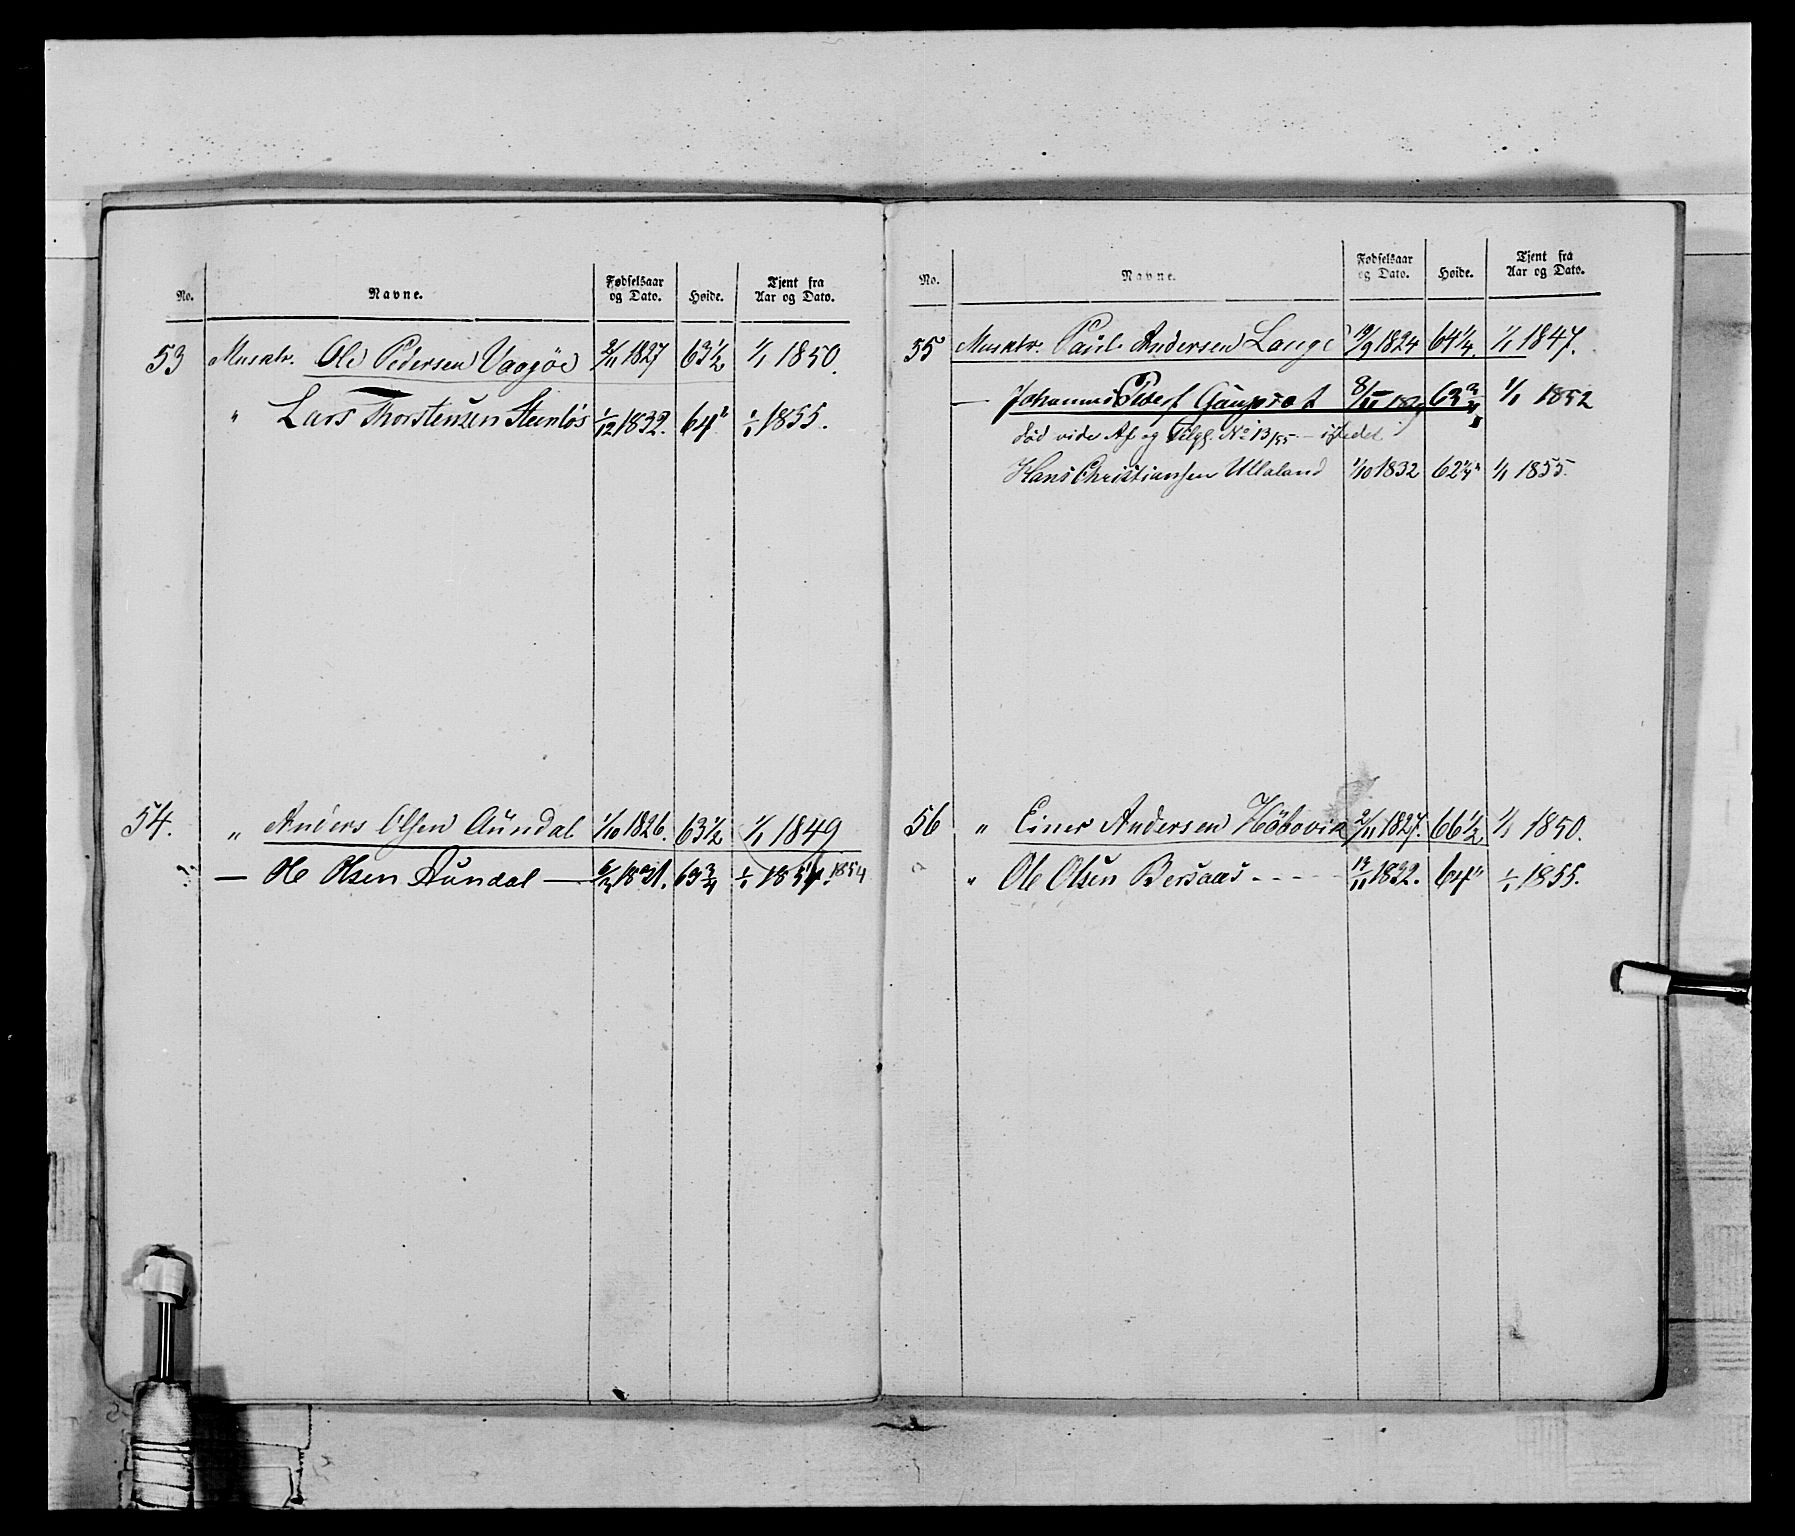 No. Navne. Fødselsaar og Dato. Høide. Tjent fra Aar og Dato.
53 Musktr. Ole Pedersen Vaagøe 2/11 1827 63 1/2 1/1 1850.
" Lars Thorstensen Steenløs 1/12 1832. 64" 1/1 1855.
54. " Anders Olsen Aundal 1/10 1826. 63 1/2 1/1 1849
— Ole Olsen Aundal — 1831. 63 3/4 1/1 1854. 1854
No. Navne. Fødselsaar og Dato. Høide. Tjent fra Aar og Dato.
55 Musktr. Paul Andersen Lange 19/9 1824 64 1/4. 1/1 1847.
— Johannes 8/11 63 3/4 1/1 1852
død vide Af og Tilgl. No 13/55 — istedet
Hans Christiansen Ullaland 1/10 1832 62 1/4" 1/1 1855.
56 " Einer Andersen Høbovik 2/11 1827. 66 1/2 1/1 1850.
" Ole Olsen Bersaas - - - - 13/11 1832. 64" 1/1 1855.